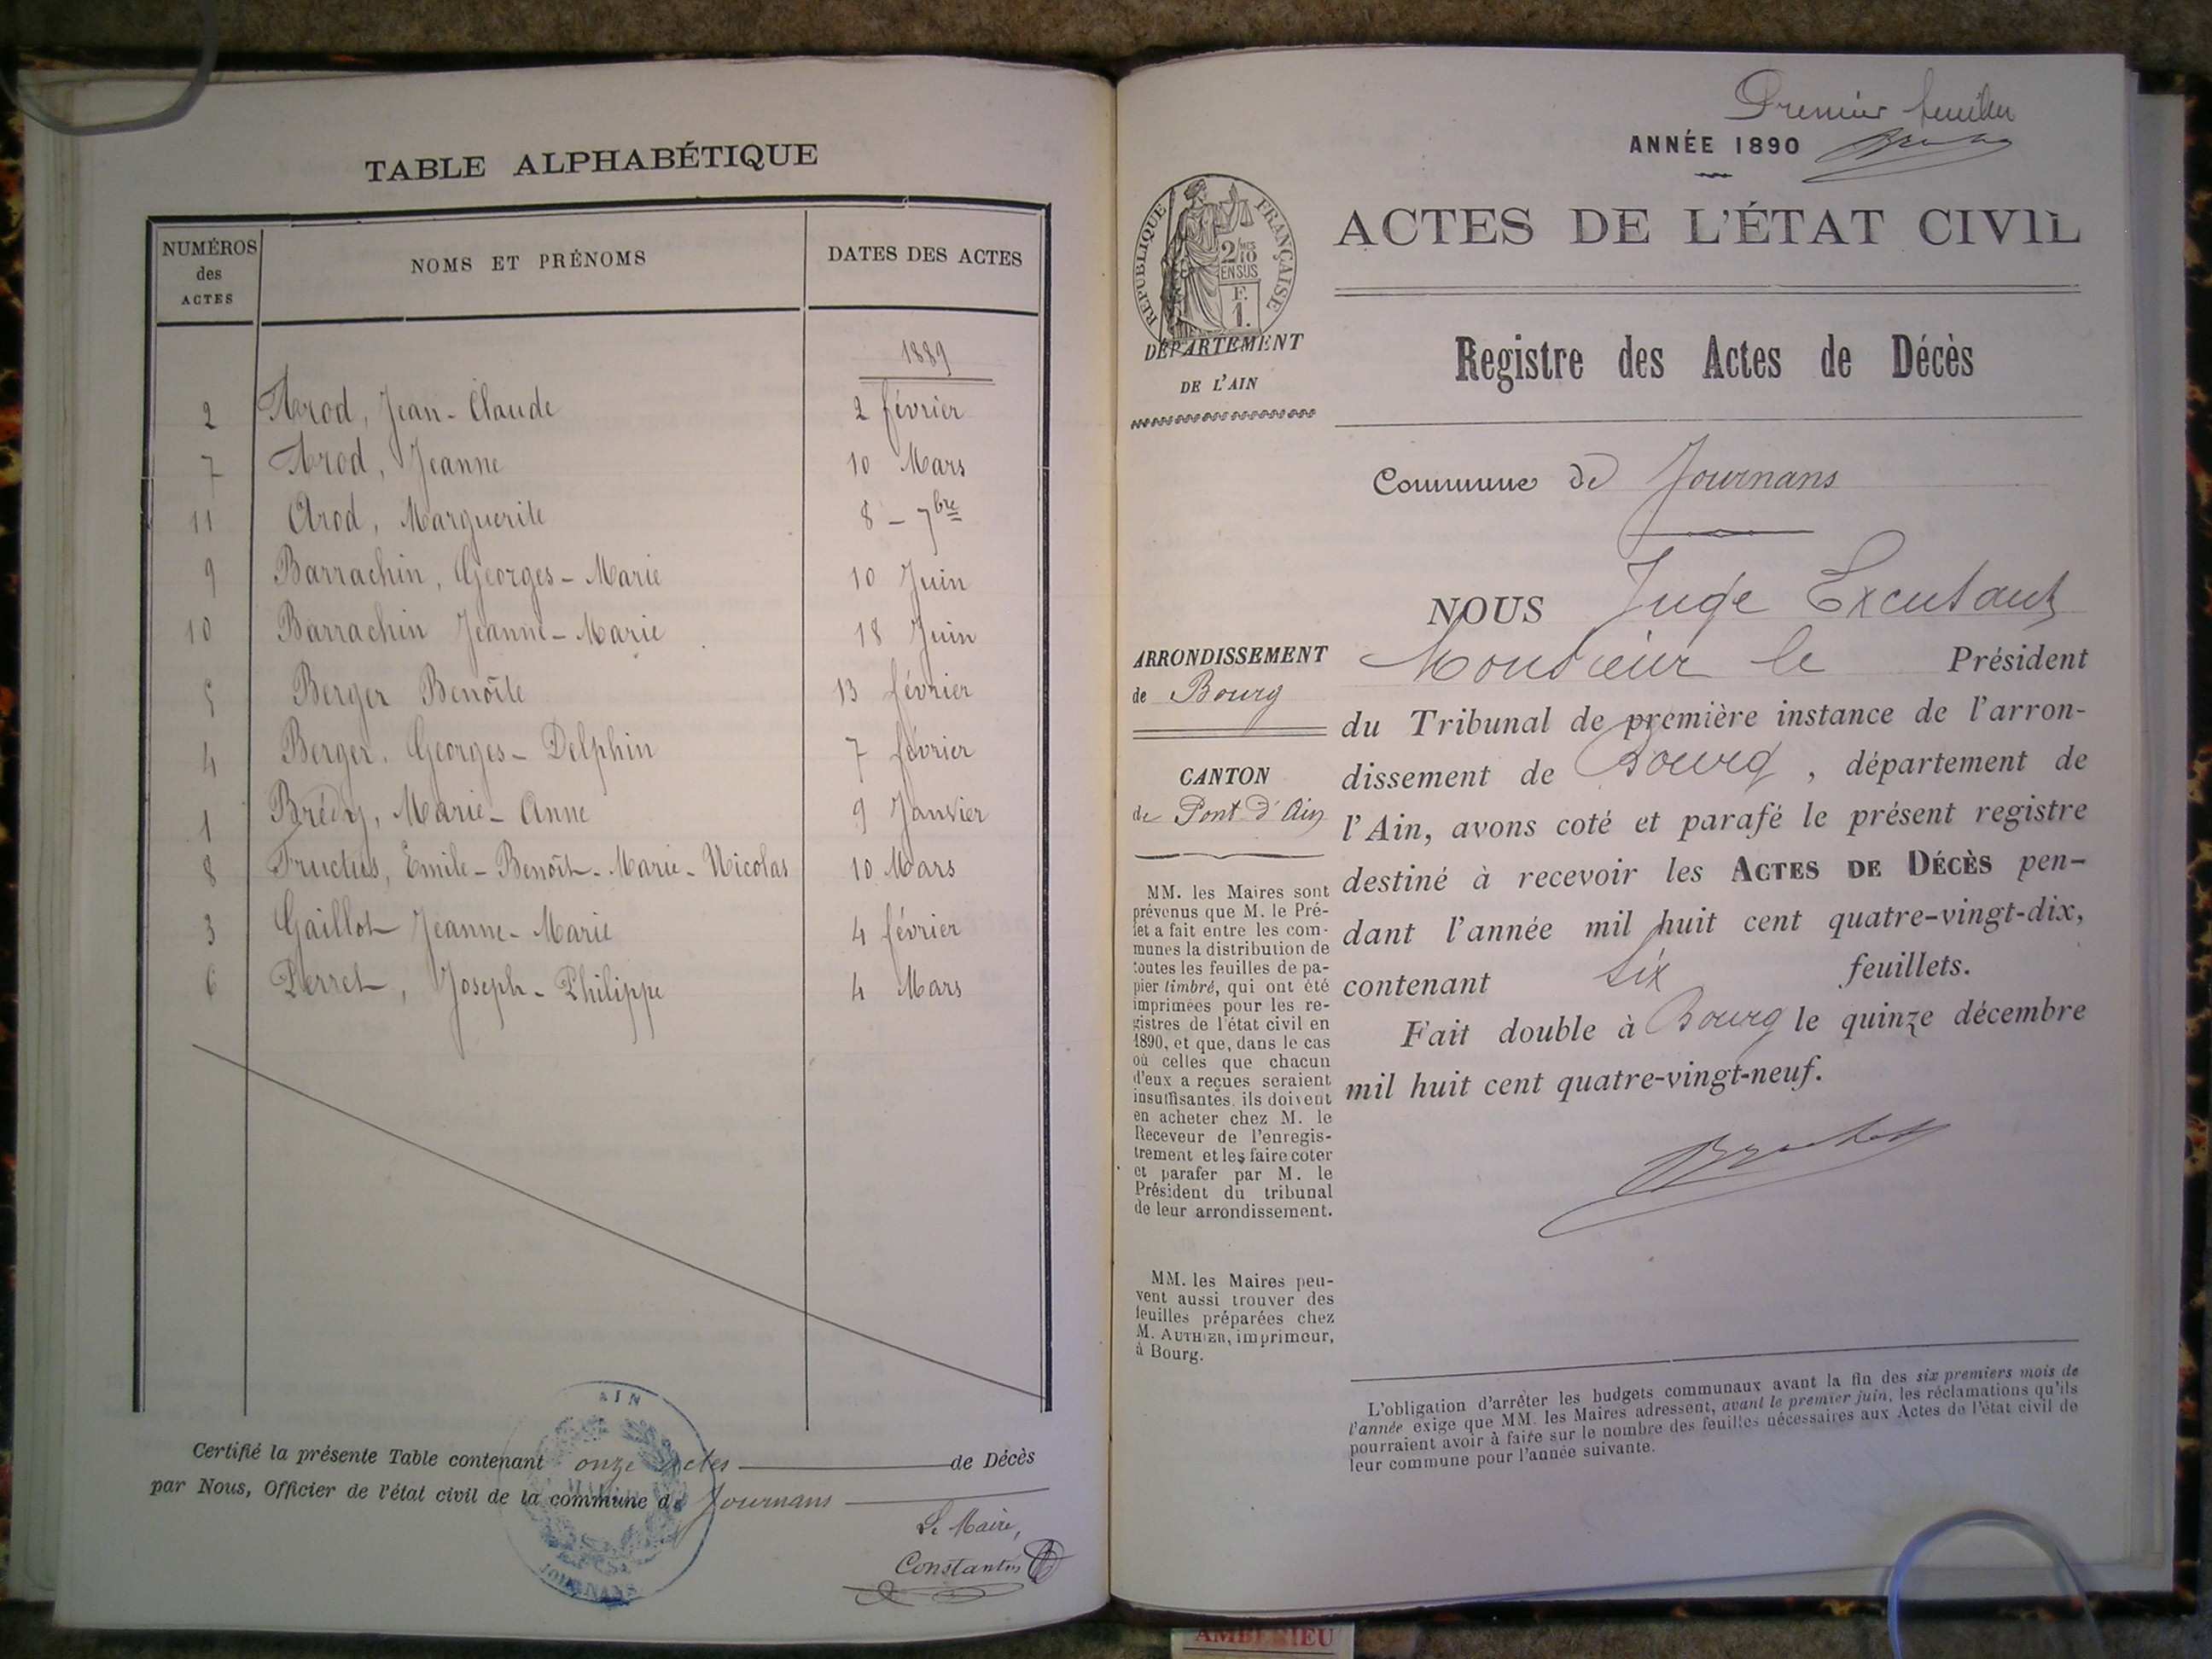 TABLE ALPHABÉTIQUE
NUMÉROS des ACTES NOMS ET PRÉNOMS DATES DES ACTES
1889
2 Arod, Jean-Claude 2 février
7 Arod, Jeanne 10 Mars
11 Arod, Marguerite 8 - 7bre
9 Barrachin, Georges-Marie 10 Juin
10 Barrachin Jeanne-Marie 18 Juin
5 Berger Benoîte 13 février
4 Berger, Georges-Delphin 7 février
1 Marie-Anne 9 Janvier
8 Fructus, Emile-Benoît-Marie-Nicolas 10 Mars
3 Gaillot Jeanne-Marie 4 février
6 Perret, Joseph-Philippe 4 Mars
Certifié la présente Table contenant onze actes de Décès
par Nous, Officier de l'état civil de la commune de Journans
Le Maire,
Constantin
AIN
MAIRIE
JOURNANS
Premier feuillet
ANNÉE 1890
ACTES DE L'ÉTAT CIVIL
RÉPUBLIQUE FRANÇAISE
2/10 EN SUS
F.
1.
DÉPARTEMENT
DE L'AIN
Registre des Actes de Décès
Commune de Journans
ARRONDISSEMENT
de Bourg
CANTON
de Pont d'Ain
MM. les Maires sont
prévenus que M. le Pré-
fet a fait entre les com-
munes la distribution de
toutes les feuilles de pa-
pier timbré, qui ont été
imprimées pour les re-
gistres de l'état civil en
1890, et que, dans le cas
où celles que chacun
d'eux a reçues seraient
insuffisantes, ils doivent
en acheter chez M. le
Receveur de l'enregis-
trement et les faire coter
et parafer par M. le
Président du tribunal
de leur arrondissement.
MM. les Maires peu-
vent aussi trouver des
feuilles préparées chez
M. AUTHIER, imprimeur,
à Bourg.
NOUS Juge Excusant
Monsieur le Président
du Tribunal de première instance de l'arron-
dissement de Bourg, département de
l'Ain, avons coté et parafé le présent registre
destiné à recevoir les ACTES DE DÉCÈS pen-
dant l'année mil huit cent quatre-vingt-dix,
contenant six feuillets.
Fait double à Bourg le quinze décembre
mil huit cent quatre-vingt-neuf.
L'obligation d'arrêter les budgets communaux avant la fin des six premiers mois de
l'année exige que MM. les Maires adressent, avant le premier juin, les réclamations qu'ils
pourraient avoir à faire sur le nombre des feuilles nécessaires aux Actes de l'état civil de
leur commune pour l'année suivante.
AMBERIEU